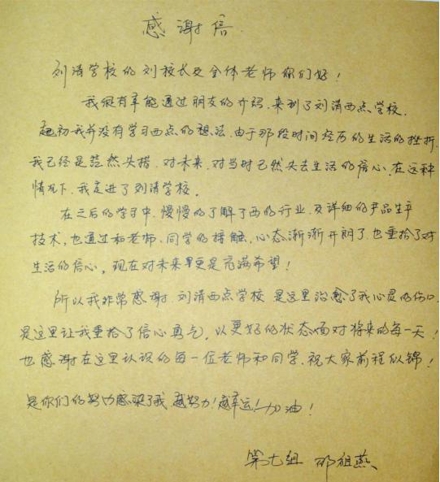 感谢信
刘清学校的刘校长及全体老师你们好！
我很有幸能通过朋友的介绍，来到了刘清西点学校。
起初我并没有学习西点的想法，由于那段时间经历的生活的挫折，
我已经是茫然失措，对未来，对当时已然失去生活的信心，在这种
情况下，我走进了刘清学校。
在之后的学习中，慢慢的了解了西的行业，及详细的产品生产
技术，也通过和老师、同学的接触，心态渐渐开朗了，也重拾了对
生活的信心，现在对未来更是充满希望！
所以我非常感谢 刘清西点学校 是这里治愈了我心灵的伤口
是这里让我重拾了信心勇气，以更好的状态面对将来的每一天！
也感谢在这里认识的每一位老师和同学，祝大家前程似锦！
是你们的努力感染了我 加油！
第七组 邵祖燕